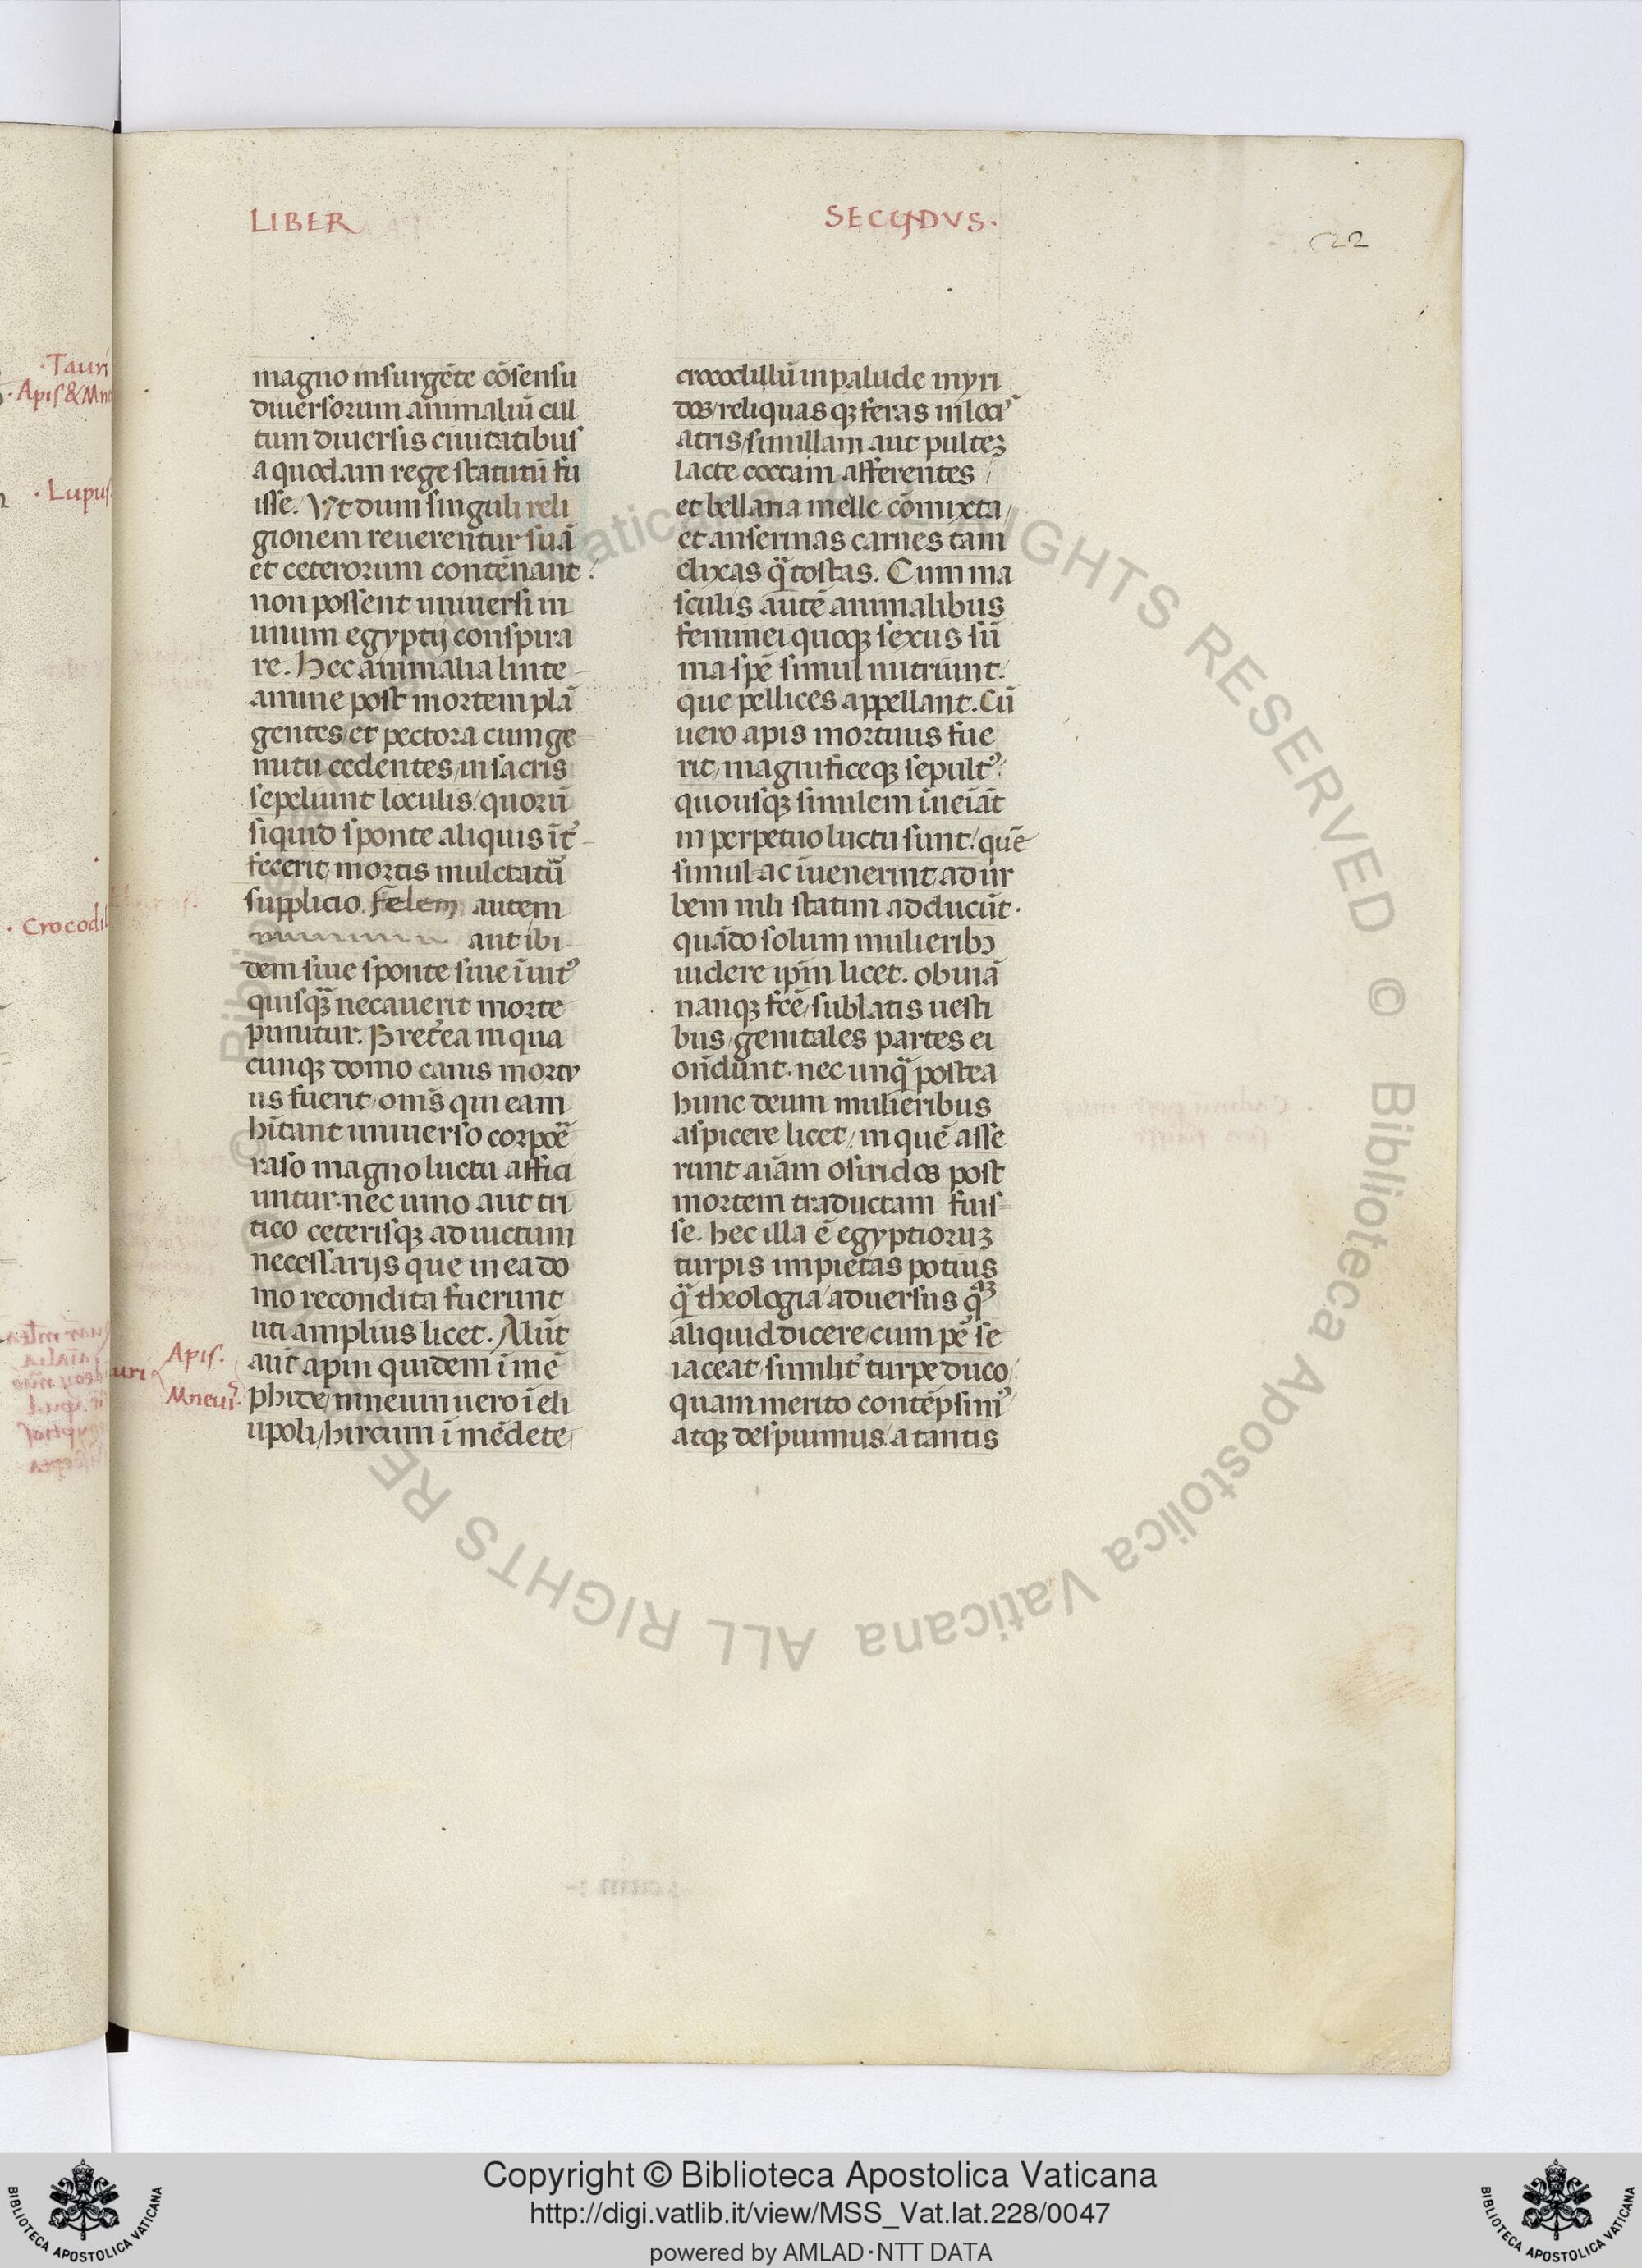 LIBER
SECVNDVS.
22
·Tauri
·Apis & Mne
·Lupus
·Crocodil
magno insurgēte cōsensu
diuersorum animaliū cul
tum diuersis ciuitatibus
a quodam rege statutū fu
isse. Vt dum singuli reli
gionem reuerentur suā
et ceterorum contēnant:
non possent uniuersi in
unum egyptij conspira
re. Hec animalia linte
amine post mortem plā
gentes/et pectora cum ge
mitu cedentes/in sacris
sepeliunt loculis/quorū
siquid sponte aliquis īt̄
fecerit/mortis mulctatur̄
supplicio. Felem autem
aut ibi
dem siue sponte siue īuitꝰ
quisq̄ necauerit morte
punitur. Pret̄ea in qua
cunqꝫ domo canis mortu
us fuerit/om̄s qui eam
hītant uniuerso corpoē
raso magno luctu affici
untur. nec uino aut tri
tico ceterisqꝫ ad uictum
necessarijs que in ea do
mo recondita fuerunt
uti amplius licet. Alūt
aūt apin quidem ī mē
phide/mneum uero ī eli
upoli/hircum ī mēdete/
Apis.
uri
Mneuis.
crocodillū in palude myri
dos/reliquas qꝫ feras in loci
atris/simillam aut pulteꝫ
lacte coctam afferentes/
et bellaria melle cōmixta/
et anserinas carnes tam
elixas q̄ tostas. Cum ma
sculis autē animalibus
feminei quoqꝫ sexus sū
ma spē simul nutriunt:
que pellices appellant. Cū
uero apis mortuus fue
rit/magnificeqꝫ sepultꝰ:
quousqꝫ similem īueīāt
in perpetuo luctu sunt/quē
simul ac īuenerint/ad ur
bem nili statim adducūt.
quādo solum mulieribꝫ
uidere ip̄m licet. obuiā
nanqꝫ fcē/sublatis uesti
bus/genitales partes ei
oñdunt. nec unq̄ postea
hunc deum mulieribus
aspicere licet/in quē asse
runt aīam osiridos post
mortem traductam fuis
se. hec illa ē egyptioruꝫ
turpis impietas potius
q̄ theologia/aduersus q̄ꝫ
aliquid dicere/cum pē se
iaceat/similit̄ turpe duco/
quam merito contēpsimꝰ
atqꝫ despuimus/a tantis
© Biblioteca Apostolica Vaticana ALL RIGHTS RESERVED © Biblioteca Apostolica Vaticana ALL RIGHTS RESERVED
Copyright © Biblioteca Apostolica Vaticana
http://digi.vatlib.it/view/MSS_Vat.lat.228/0047
powered by AMLAD·NTT DATA
BIBLIOTECA APOSTOLICA VATICANA
BIBLIOTECA APOSTOLICA VATICANA